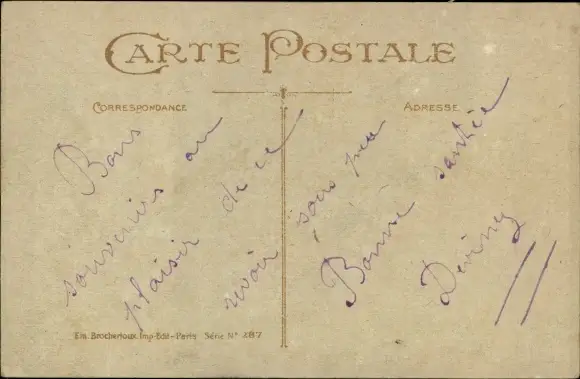 CARTE POSTALE
CORRESPONDANCE
ADRESSE
Bons
souvenirs au
plaisir de ce
revoir sous peu
Bonne santée
Em. Brocherioux Imp-Edit-Paris Série N° 287